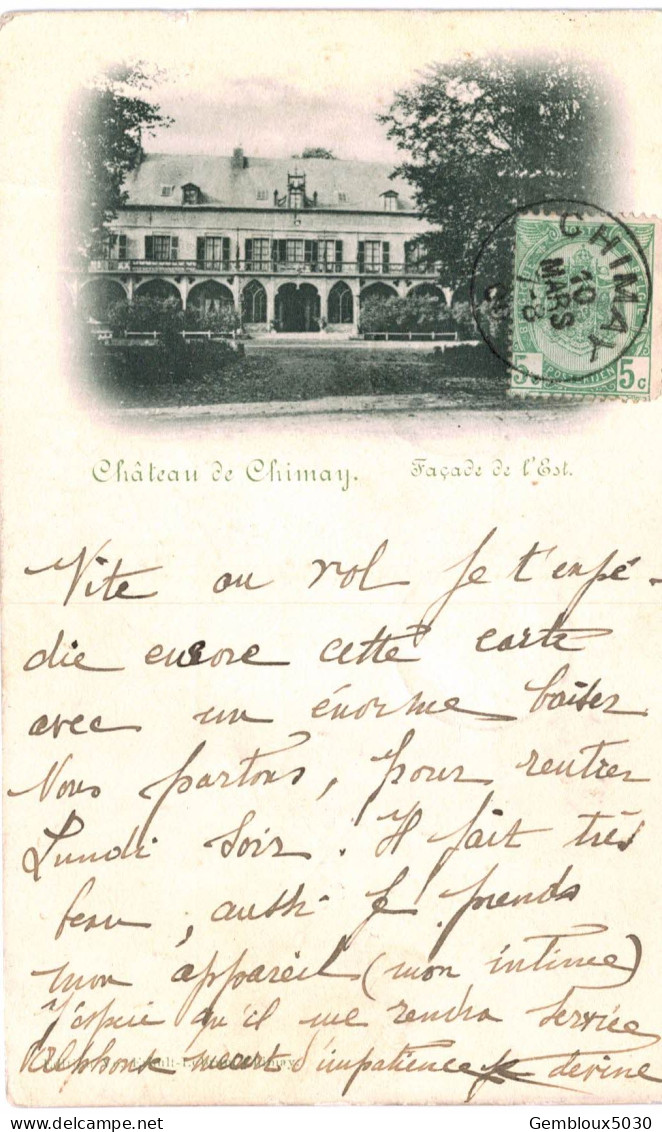 CHIMAY
10
MARS
7-8
00
5 c
5 c
Château de Chimay. Façade de l'Est.
Vite au vol je t'expé-
die encore cette carte
avec un énorme baiser
Nous partons, pour rentrer
Lundi soir. Il fait très
beau, aussi je prends
mon appareil (mon intime)
J'espère qu'il me rendra service
Alphonse meurt d'impatience je devine
Gembloux5030